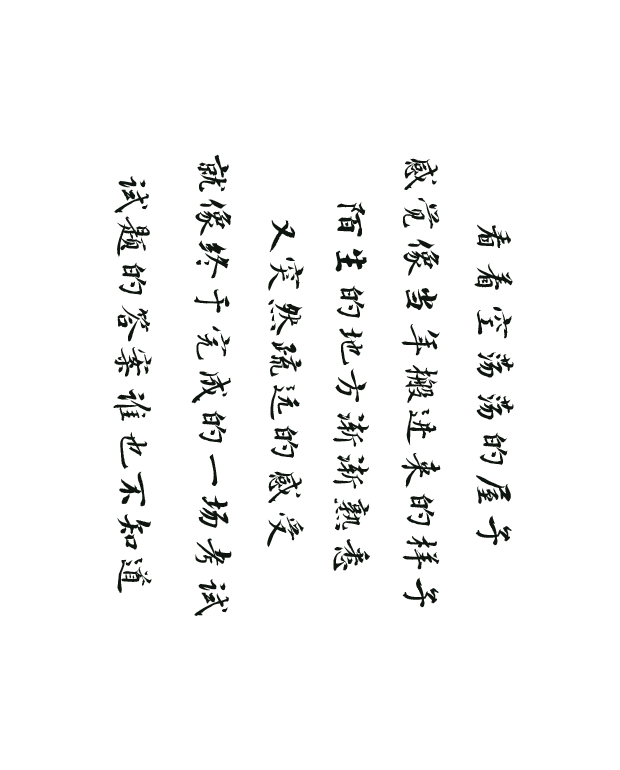 看着空荡荡的屋子
感觉像当年搬进来的样子
陌生的地方渐渐熟悉
又突然疏远的感受
就像终于完成的一场考试
试题的答案谁也不知道